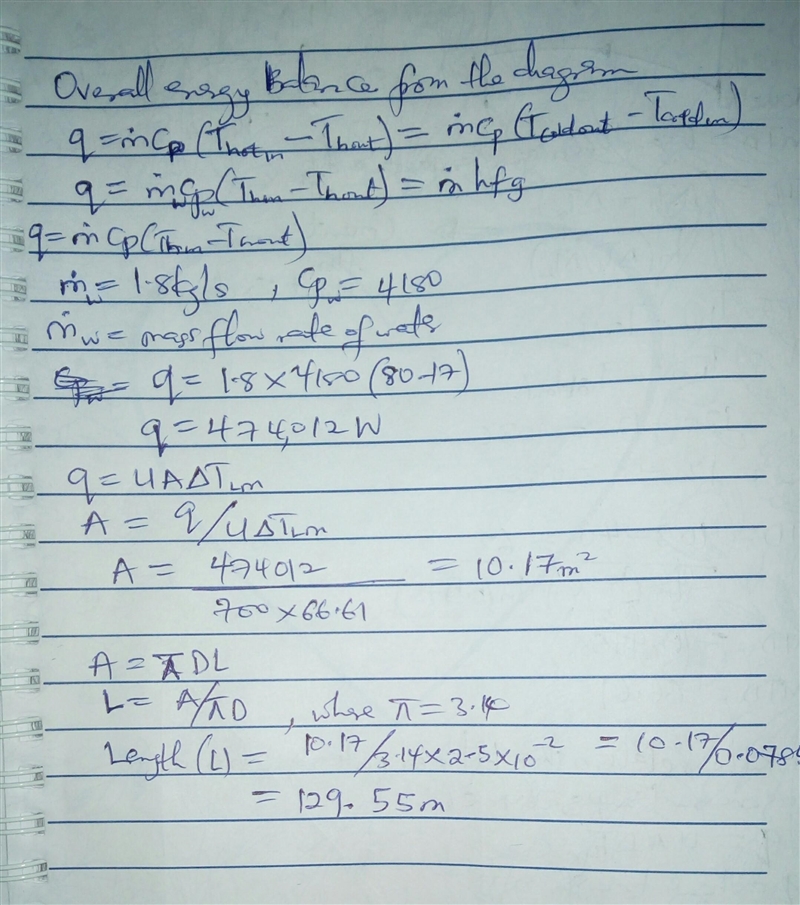 Overall energy Balance from the diagram
q = ṁCp(Thotin − Thout) = ṁCp(Tcoldout − Tcoldin)
q = ṁwCpw(Thin − Thout) = ṁ hfg
q = ṁ Cp(Thin − Thout)
ṁw = 1.8kg/s , Cpw = 4180
ṁw = mass flow rate of water
q = 1.8 × 4180 (80-17)
q = 474,012 W
q = UAΔTLm
A = q/UΔTLm
A = 474012 / 700 × 66.61 = 10.17m²
A = πDL
L = A/πD , where π = 3.14
Length (L) = 10.17/3.14×2.5×10⁻² = 10.17/0.0785
= 129.55m